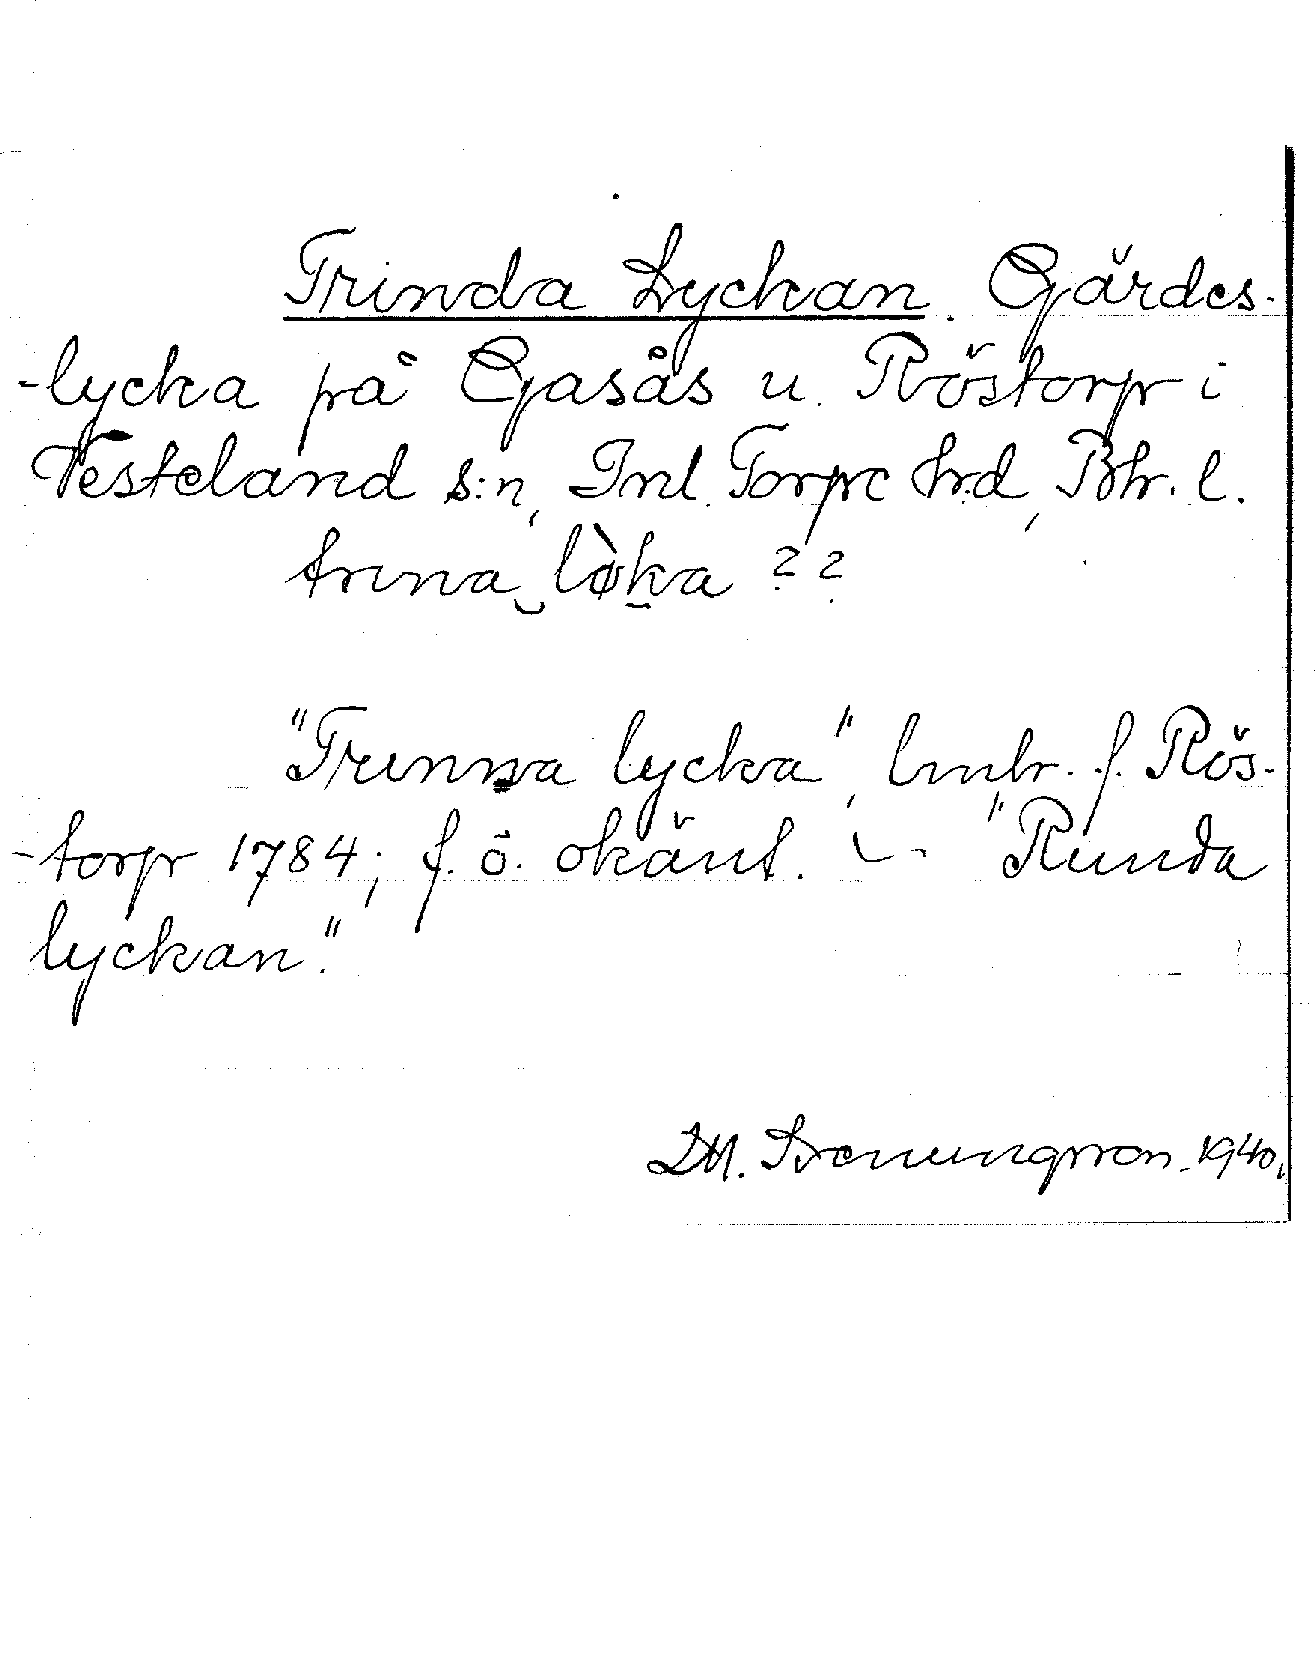 Trinda Lyckan. Gärdes-
-lycka på Gasås u. Röstorp i
Vesteland s:n, Inl. Torpe hrd, Bhr. l.
trina løka ??
"Trinna lycka", lmbr. f. Rös-
-torp 1784; f. ö. okänt. – "Runda
lyckan".
1940.